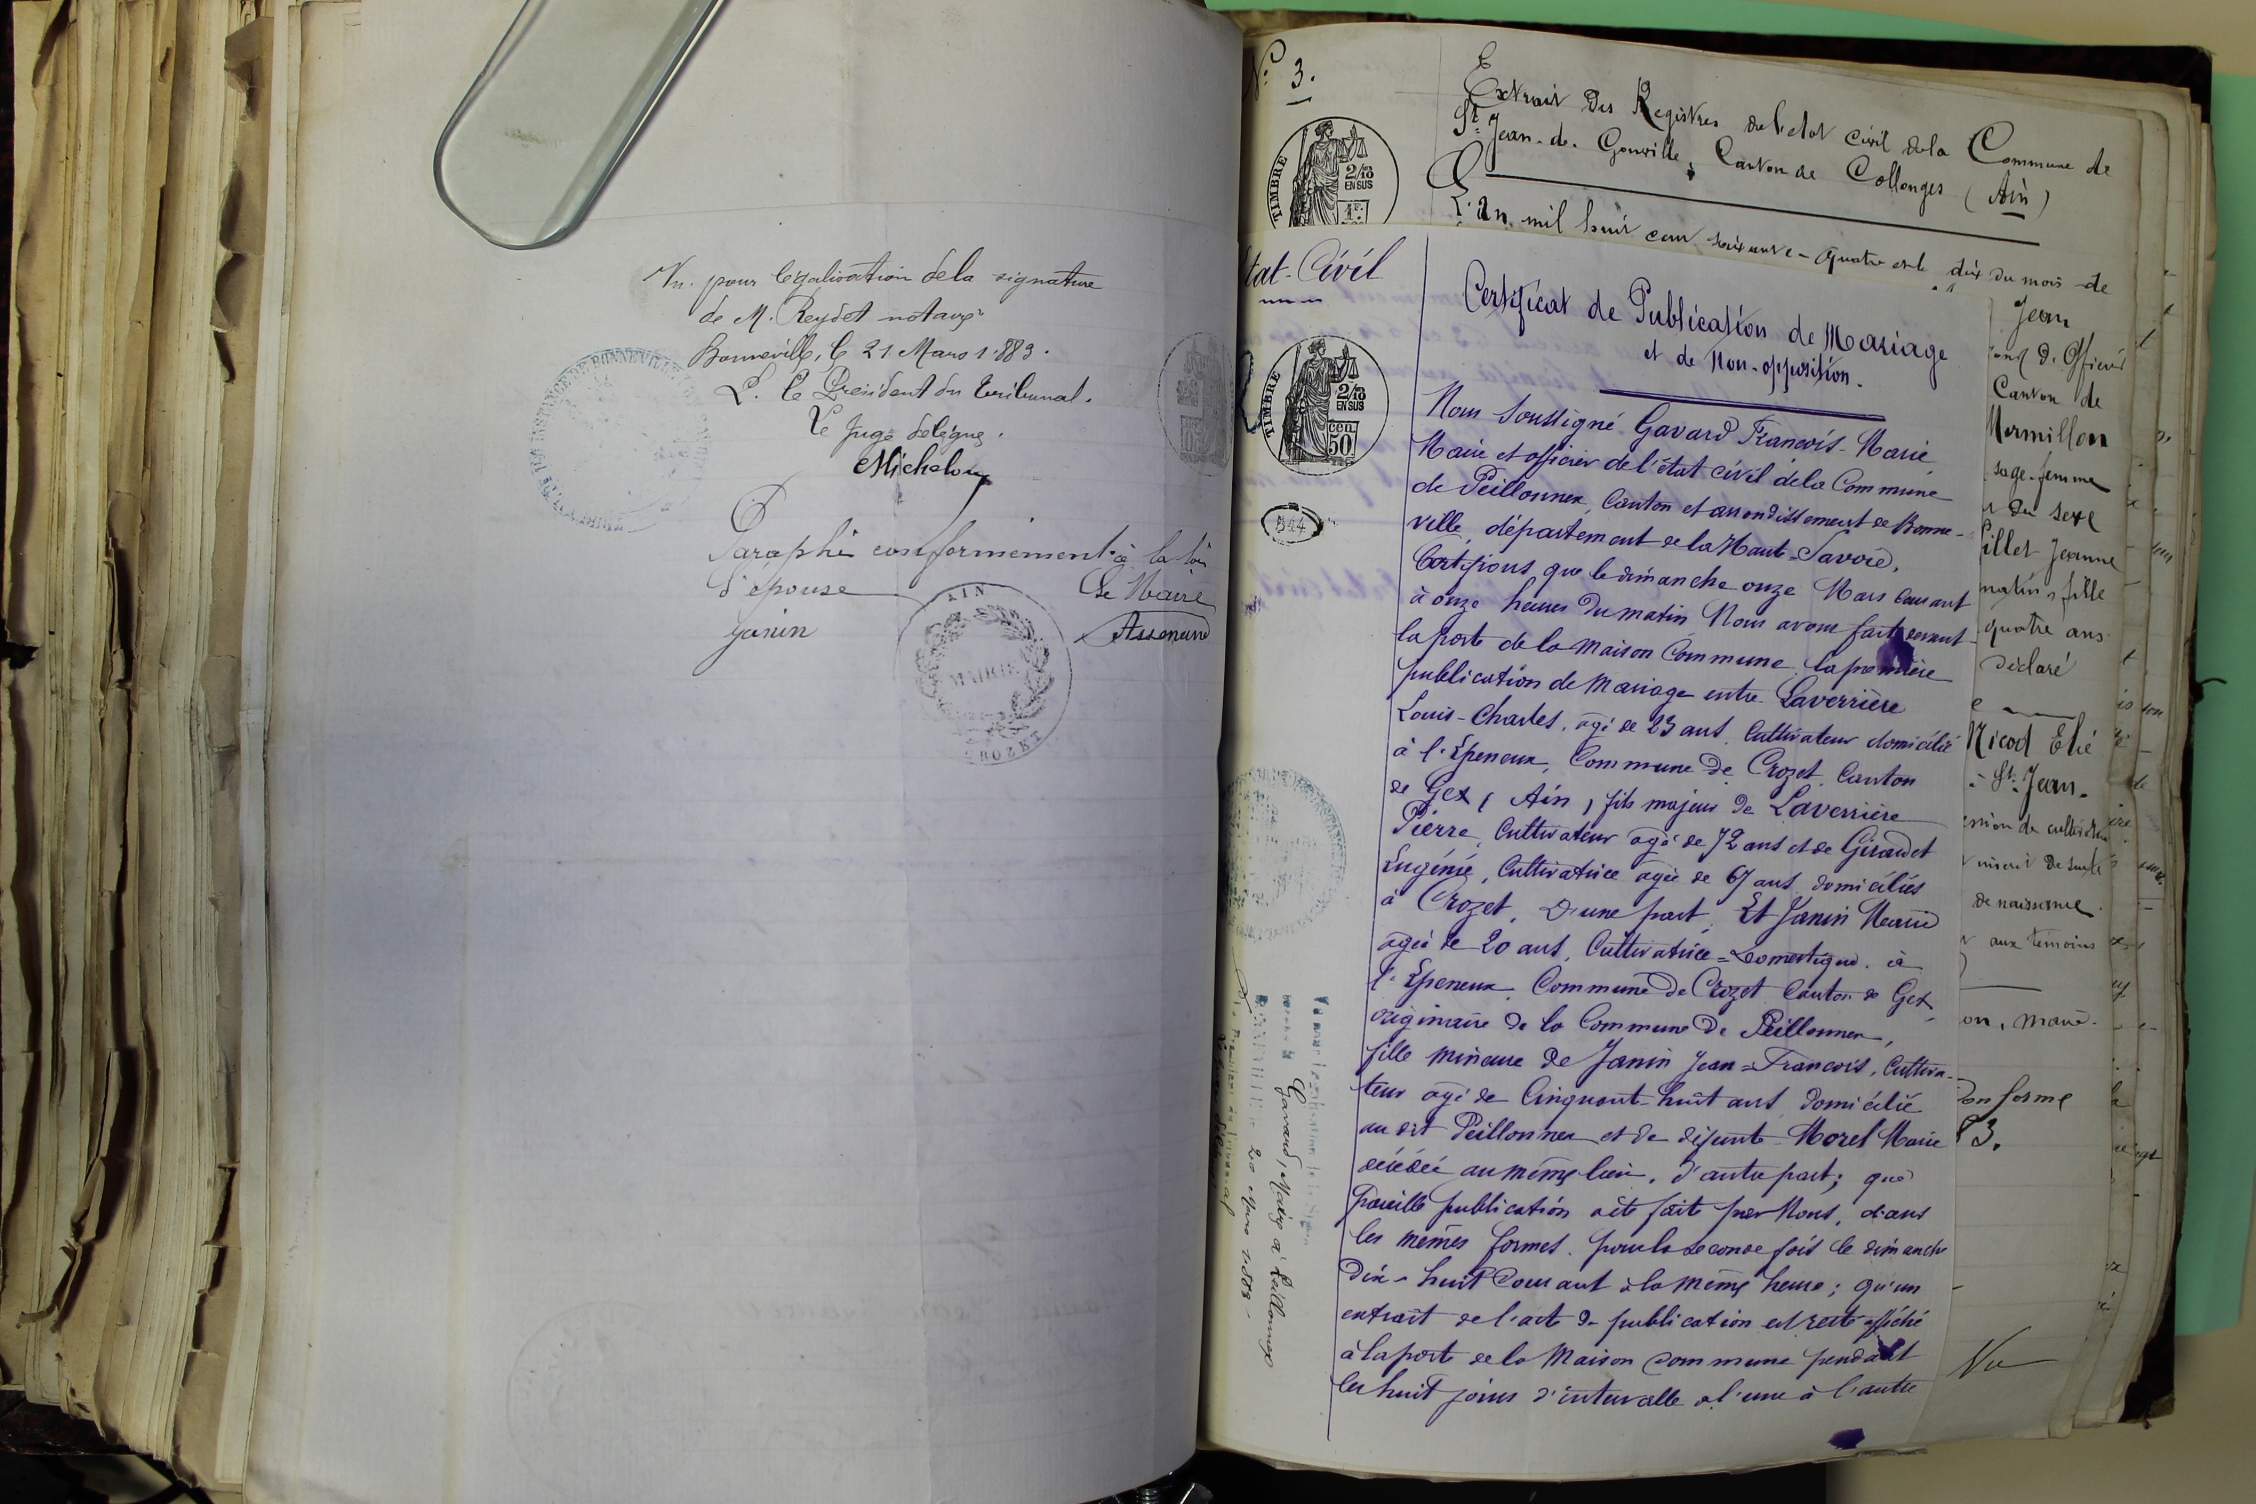 Vu pour légalisation de la signature
de M. Reydet notaire
Bonneville, le 21 Mars 1883.
P. le Président du Tribunal.
Le Juge délégué.
Paraphé conformément à la loi
L'épouse Le Maire
Janin
AIN
MAIRIE
CROZET
No 3.
Extrait des Registres de l'etat civil dela Commune de
St Jean-de-Gonville, Canton de Collonges (Ain)
TIMBRE
2/10
EN SUS
1 F.
L'an mil huit cent soixante-quatre et le dix du mois de
tat-Civil
Certificat de Publication de Mariage
et de Non-opposition.
TIMBRE
2/10
EN SUS
50 cen
Nous soussigné Gavard François-Marie
Maire et officier de l'état civil de la Commune
de Peillonnex, Canton et arrondissement de Bonne-
ville, département de la Haute-Savoie,
Certifions que le dimanche onze Mars courant
à onze heures du matin Nous avons fait devant
la porte de la Maison Commune la première
publication de Mariage entre Laverrière
Louis-Charles, agé de 23 ans Cultivateur domicilié
à l'Epeneux, Commune de Crozet Canton
de Gex (Ain) fils majeur de Laverrière
Pierre, Cultivateur agé de 72 ans et de Giraudet
Eugénie, Cultivatrice agée de 67 ans domiciliés
à Crozet, D'une part, Et Janin Marie
agée de 20 ans, Cultivatrice=Domestique à
l'Epeneux Commune de Crozet Canton de Gex,
originaire de la Commune de Peillonnex,
fille mineure de Janin Jean=François, Cultiva-
teur agé de Cinquante-huit ans domicilié
au dit Peillonnex et de défunte Morel Marie
décédée au même lieu, d'autre part; que
Pareille publication a été faite par Nous, dans
les mêmes formes pour la seconde fois le dimanche
Dix-huit Courant à la même heure; qu'un
extrait de l'acte de publication est resté affiché
à la porte de la Maison Commune pendant
les huit jours d'intervalle de l'une à l'autre
Gavard, Maire à Peillonnex
20 Mars 1883
Jean
Canton de
Mermillon
sage-femme
du sexe
Jeanne
matin, fille
quatre ans
déclaré
Nicod Elie
St Jean-
de cultivateur
de suite
de naissance.
aux témoins
forme
Vu